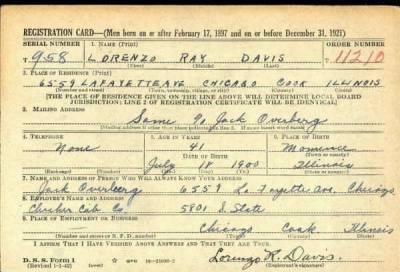 REGISTRATION CARD—(Men born on or after February 17, 1897 and on or before December 31, 1921)
SERIAL NUMBER 1. NAME (Print) ORDER NUMBER
T 958 LORENZO RAY DAVIS 11210
(First) (Middle) (Last)
2. PLACE OF RESIDENCE (Print)
6559 LAFAYETTE AVE CHICAGO COOK ILLINOIS
(Number and street) (Town, township, village, or city) (County) (State)
[THE PLACE OF RESIDENCE GIVEN ON THE LINE ABOVE WILL DETERMINE LOCAL BOARD
JURISDICTION; LINE 2 OF REGISTRATION CERTIFICATE WILL BE IDENTICAL]
3. MAILING ADDRESS
Same % Jack Overberg
[Mailing address if other than place indicated on line 2. If same insert word same]
4. TELEPHONE 5. AGE IN YEARS 6. PLACE OF BIRTH
None 41 Momence
DATE OF BIRTH (Town or county)
July 18 1900 Illinois
(Exchange) (Number) (Mo.) (Day) (Yr.) (State or country)
7. NAME AND ADDRESS OF PERSON WHO WILL ALWAYS KNOW YOUR ADDRESS
Jack Overberg 6559 La Fayette Ave. Chicago
8. EMPLOYER'S NAME AND ADDRESS
Checker Cab Co. 5801 S State
9. PLACE OF EMPLOYMENT OR BUSINESS
Chicago Cook Illinois
(Number and street or R. F. D. number) (Town) (County) (State)
I AFFIRM THAT I HAVE VERIFIED ABOVE ANSWERS AND THAT THEY ARE TRUE.
D. S. S. Form 1
(Revised 1-1-42) (over) Lorenzo R. Davis
(Registrant's signature)